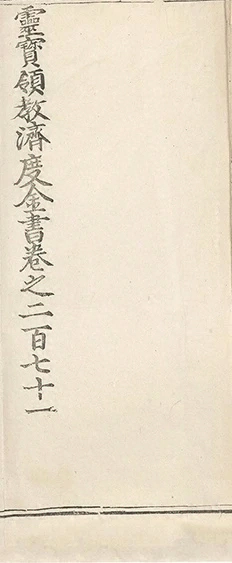 靈寶領教濟度金書卷之二百七十一